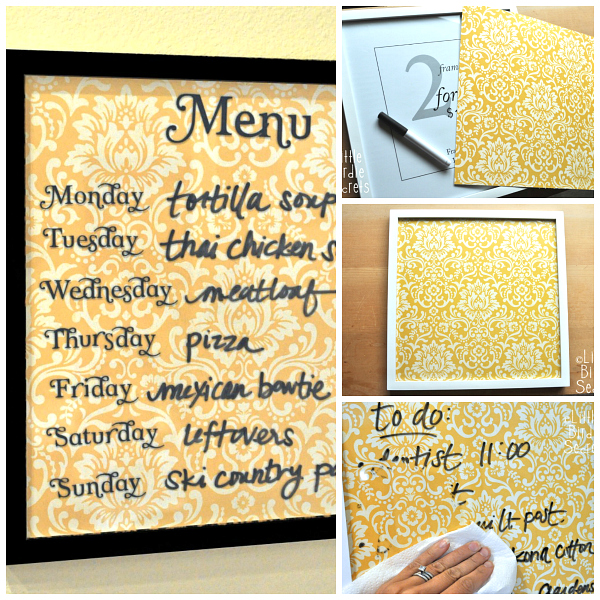 Menu
Monday tortilla soup
Tuesday thai chicken s
Wednesday meatloaf
Thursday pizza
Friday mexican bowtie
Saturday leftovers
Sunday ski country pa
2
fram
for
$
Fra
to do:
dentist 11:00
post
kona cotton